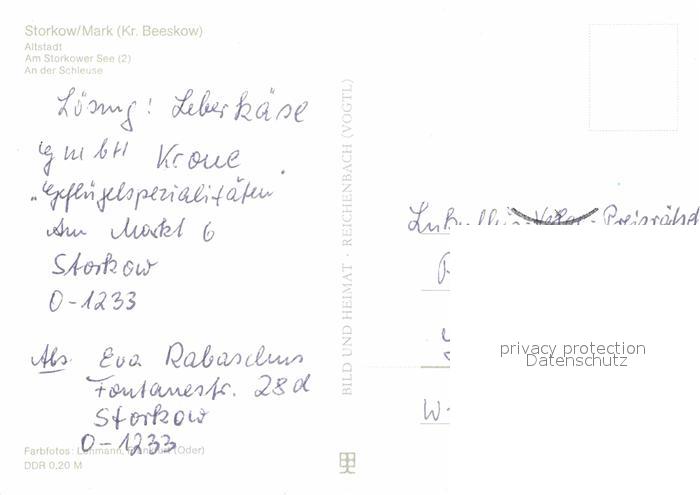 Storkow/Mark (Kr. Beeskow)
Altstadt
Am Storkower See (2)
An der Schleuse
Lösung: Leberkäse
gmbH Krone
"Geflügelspezialitäten"
Am Markt 6
Storkow
O-1233
Abs. Eva Rabaschus
Fontanestr. 28d
Storkow
O-1233
Farbfotos: Lohmann, Frankfurt (Oder)
DDR 0,20 M
BILD UND HEIMAT · REICHENBACH (VOGTL)
Preisrätsel
W-
privacy protection
Datenschutz